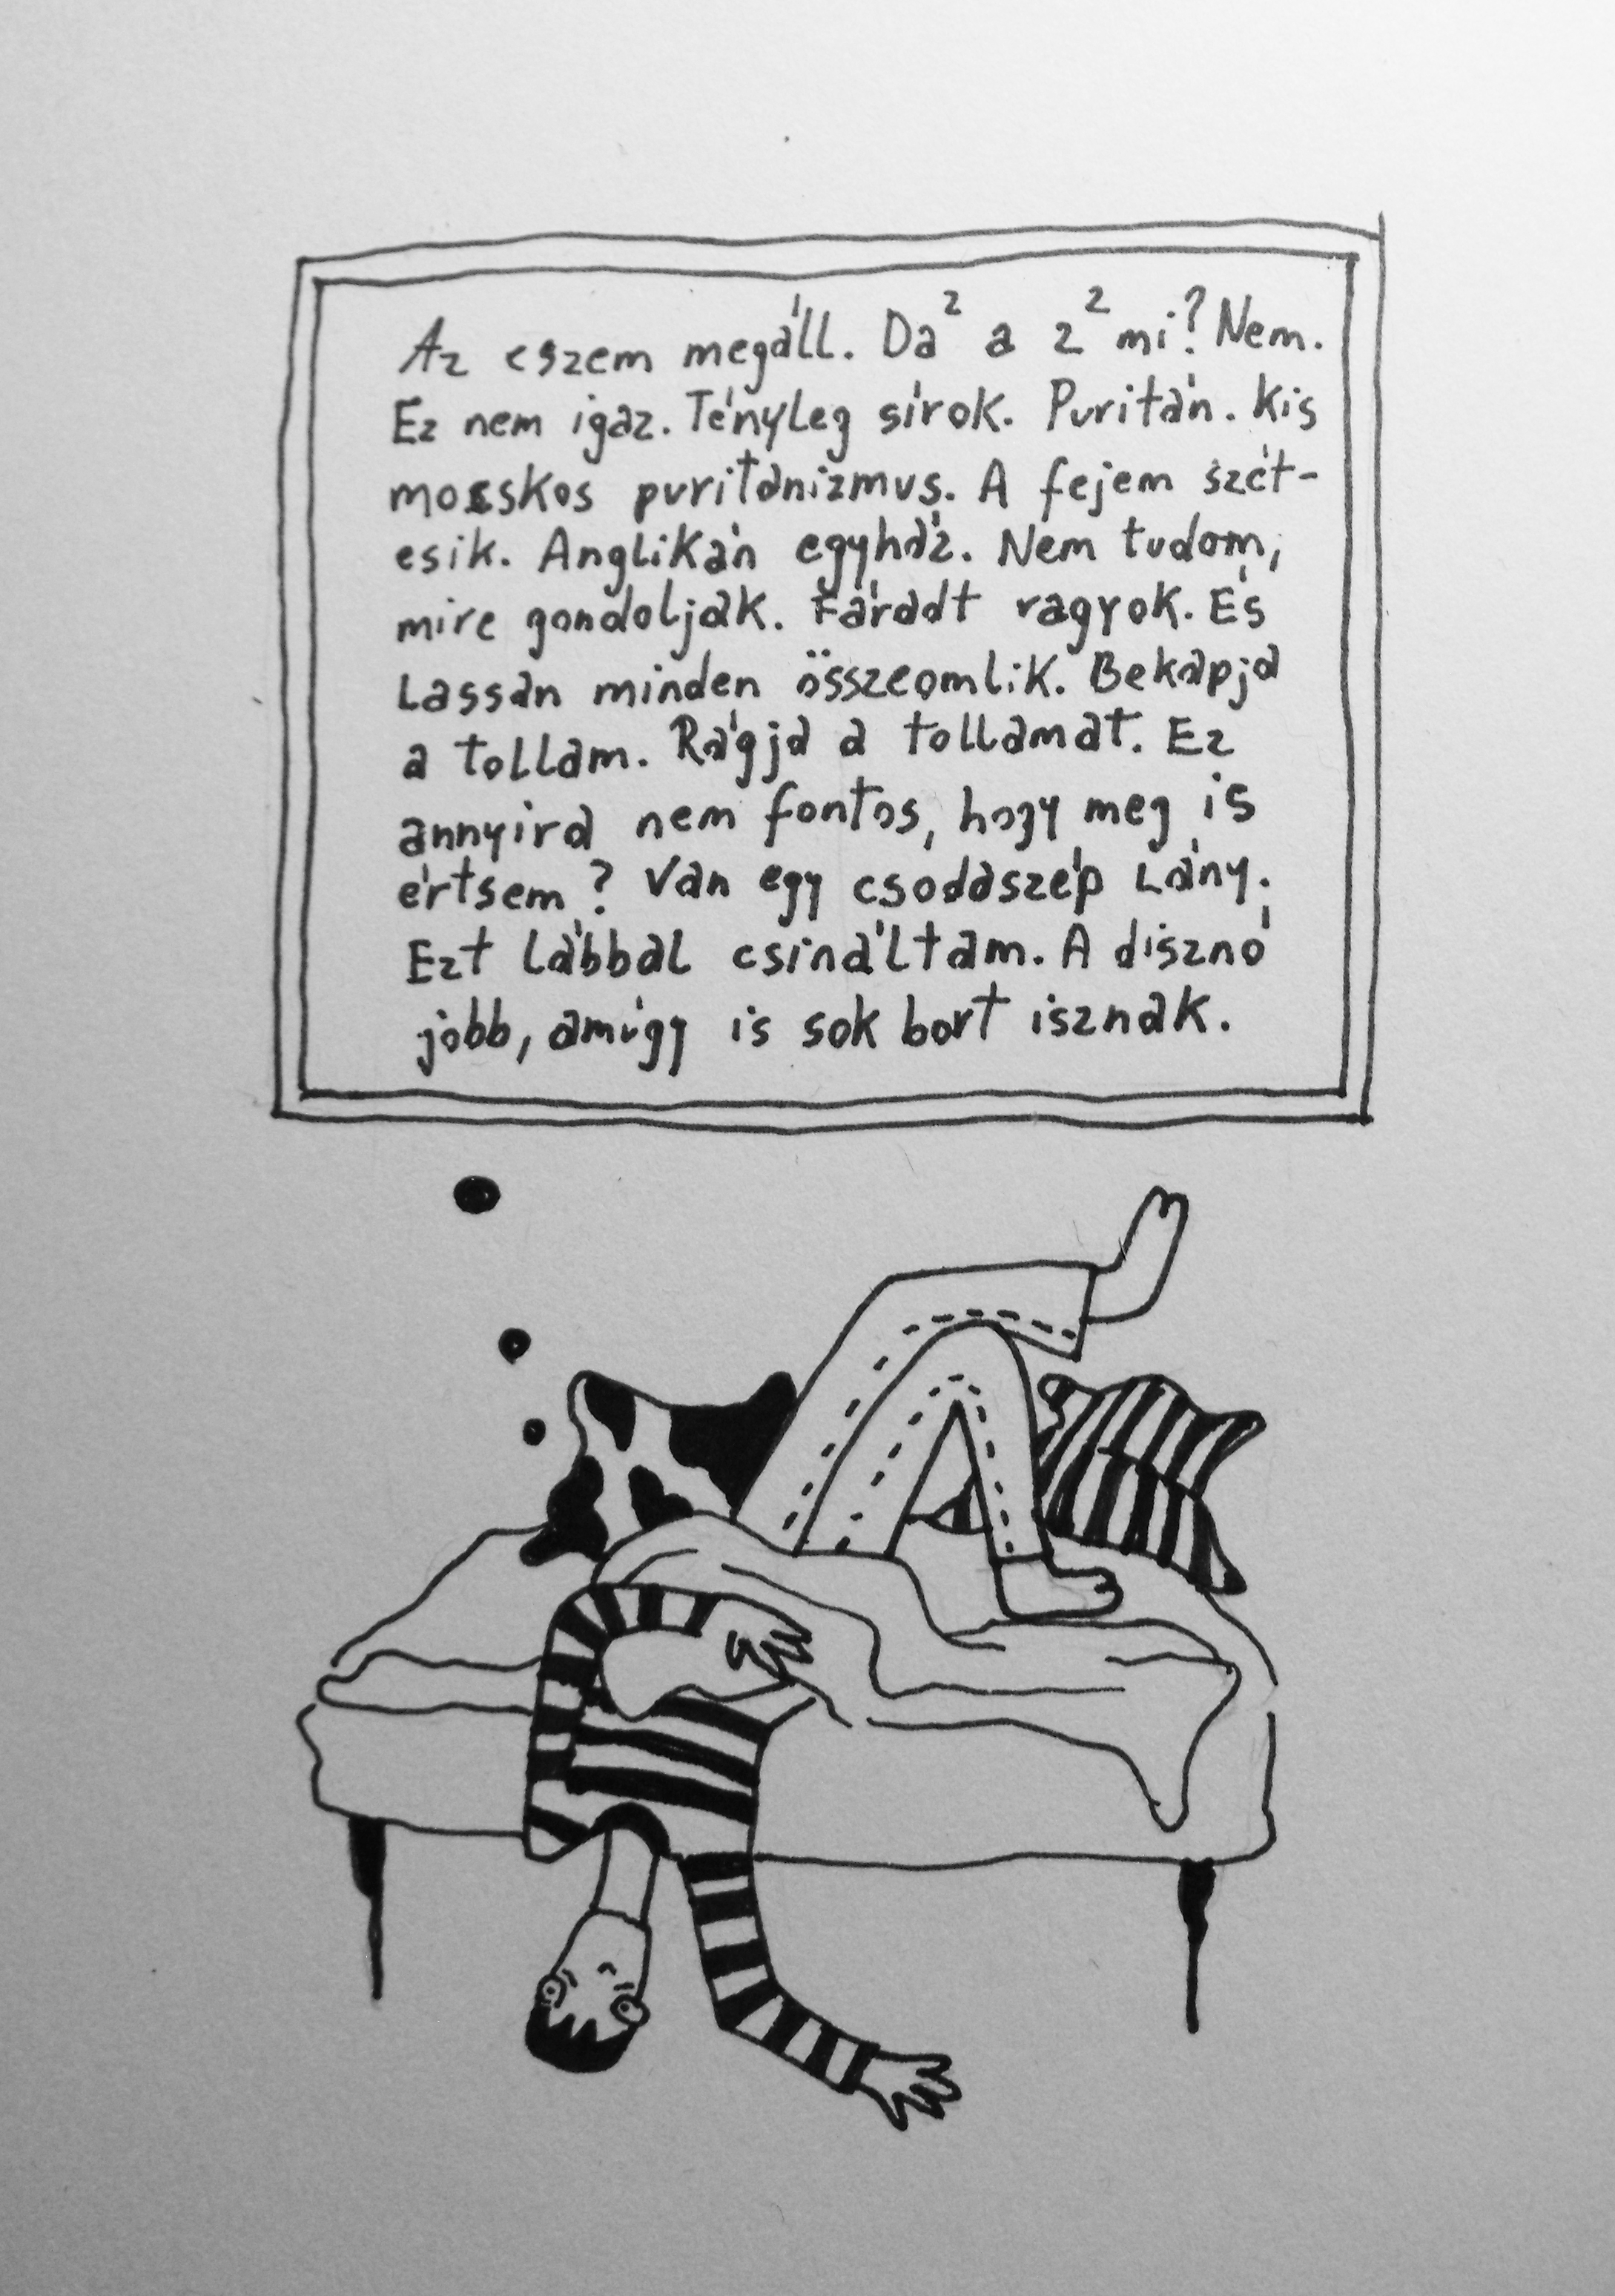 Az eszem megáll. Da² a 2² mi? Nem.
Ez nem igaz. Tényleg sírok. Puritán. Kis
mocskos puritanizmus. A fejem szét-
esik. Anglikán egyház. Nem tudom,
mire gondoljak. Fáradt vagyok. És
Lassan minden összeomlik. Bekapja
a tollam. Rágja a tollamat. Ez
annyira nem fontos, hogy meg is
értsem? Van egy csodaszép Lány.
Ezt lábbal csináltam. A disznó
jobb, amúgy is sok bort isznak.